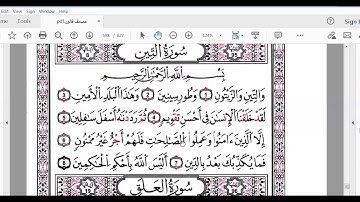 Home Tools
مصحف قالون.pdf
Sign In
598 / 627
سُورَةُ التِّينِ
بِسْمِ اللَّهِ الرَّحْمَٰنِ الرَّحِيمِ
وَالتِّينِ وَالزَّيْتُونِ ① وَطُورِ سِينِينَ ② وَهَٰذَا الْبَلَدِ الْأَمِينِ ③
لَقَدْ خَلَقْنَا الْإِنسَٰنَ فِي أَحْسَنِ تَقْوِيمٍ ④ ثُمَّ رَدَدْنَٰهُ أَسْفَلَ سَٰفِلِينَ ⑤
إِلَّا الَّذِينَ ءَامَنُوا وَعَمِلُوا الصَّٰلِحَٰتِ فَلَهُمْ أَجْرٌ غَيْرُ مَمْنُونٍ ⑥
فَمَا يُكَذِّبُكَ بَعْدُ بِالدِّينِ ⑦ أَلَيْسَ اللَّهُ بِأَحْكَمِ الْحَٰكِمِينَ ⑧
سُورَةُ الْعَلَقِ